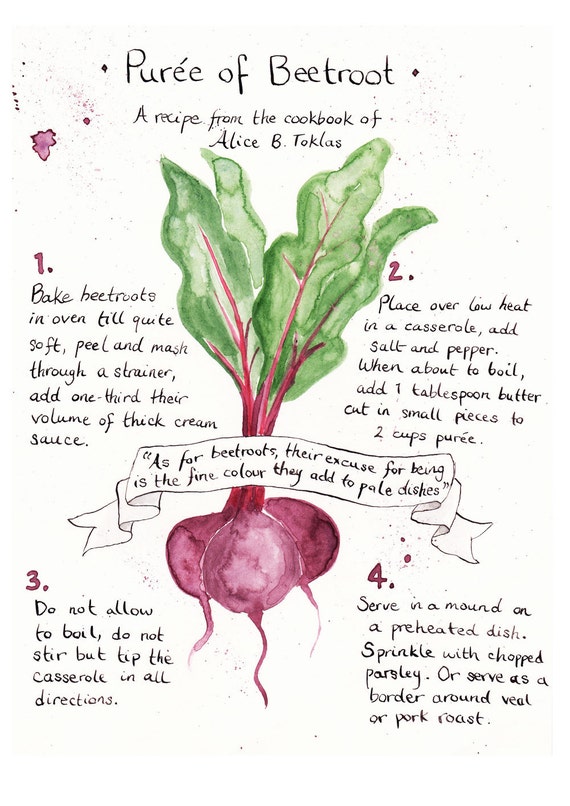 Purée of Beetroot
A recipe from the cookbook of
Alice B. Toklas
1.
Bake beetroots
in oven till quite
soft, peel and mash
through a strainer,
add one-third their
volume of thick cream
sauce.
2.
Place over low heat
in a casserole, add
salt and pepper.
When about to boil,
add 1 tablespoon butter
cut in small pieces to
2 cups purée.
"As for beetroots, their excuse for being
is the fine colour they add to pale dishes"
3.
Do not allow
to boil, do not
stir but tip the
casserole in all
directions.
4.
Serve in a mound on
a preheated dish.
Sprinkle with chopped
parsley. Or serve as a
border around veal
or pork roast.